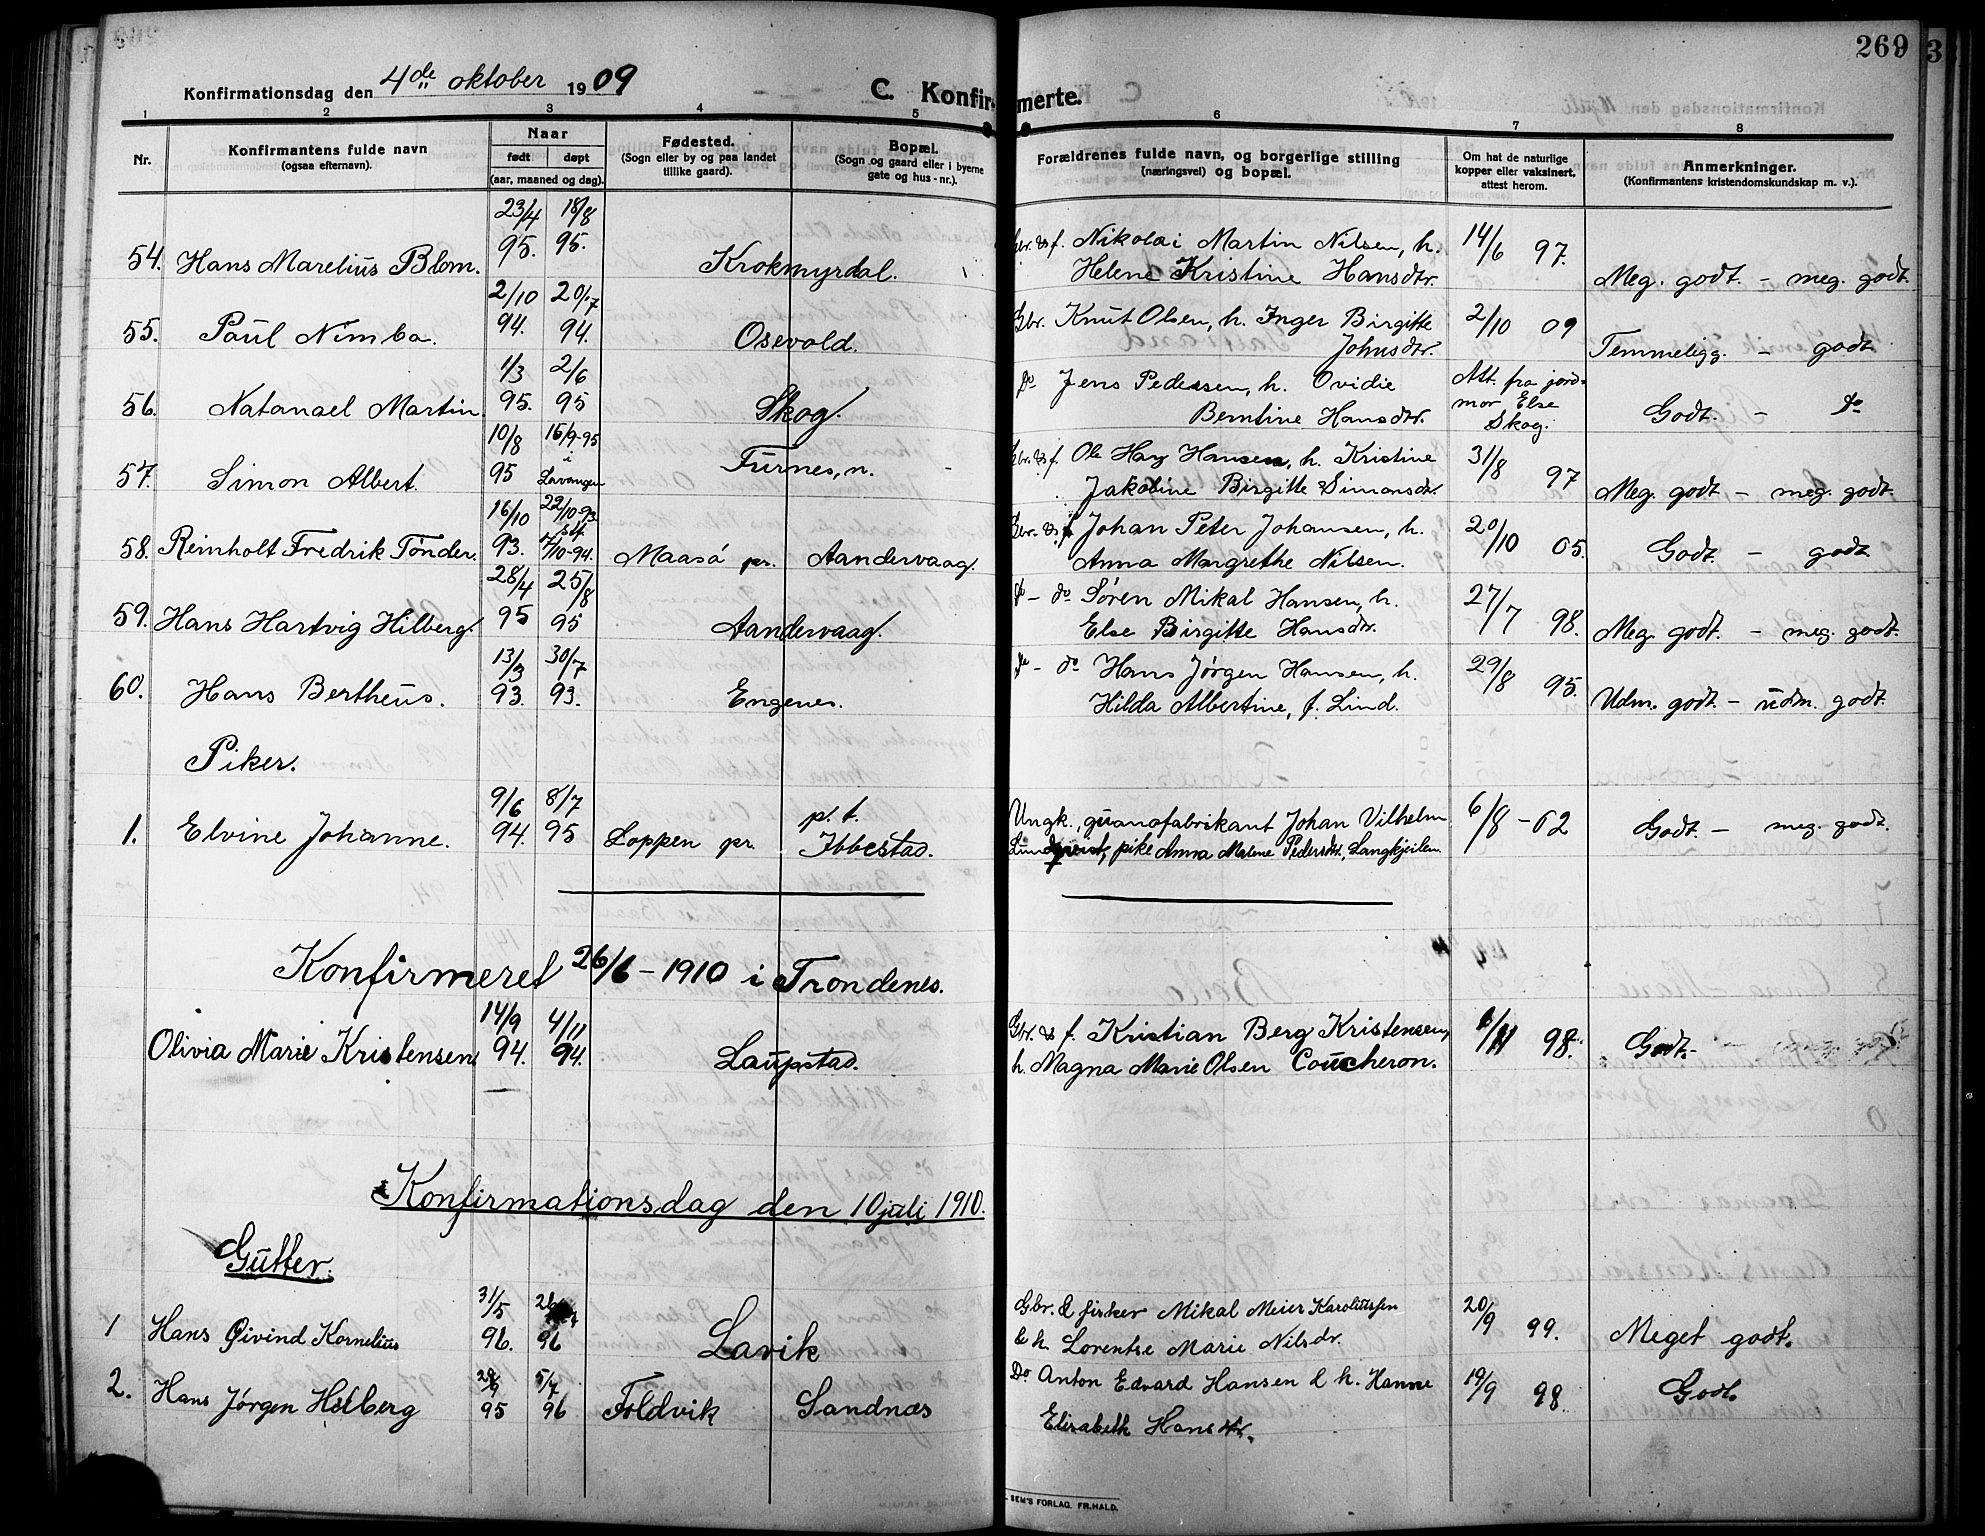 269
Konfirmationsdag den 4de oktober 1909
C. Konfirmerte.
1 2 3 4 5 6 7 8
Nr.
Konfirmantens fulde navn
(ogsaa efternavn).
Naar
født døpt
(aar, maaned og dag).
Fødested.
(Sogn eller by og paa landet
tillike gaard).
Bopæl.
(Sogn og gaard eller i byerne
gate og hus-nr.).
Forældrenes fulde navn, og borgerlige stilling
(næringsvei) og bopæl.
Om hat de naturlige
kopper eller vaksinert,
attest herom.
Anmerkninger.
(Konfirmantens kristendomskundskap m. v.).
54. Hans Marelius Blom. 23/4 95. 18/8 95. Krokmyrdal. Gbr. & f. Nikolai Martin Nilsen, h.
Helene Kristine Hansdtr. 14/6 97. Meg. godt. - meg. godt.
55. Paul Nimba. 2/10 94. 20/7 94. Osevold. Gbr. Knut Olsen, h. Inger Birgitte
Johnsdtr. 2/10 09 Temmeligg. - godt
56. Natanael Martin. 1/3 95. 2/6 95 Skog. Do Jens Pedersen, h. Ovidie
Berntine Hansdtr. Att. fra jord-
mor Else
Skog. Godt. - Do
57. Simon Albert. 10/8 95 16/9-95
i
Lavangen Furnes, n. Gbr. & f. Ole Hag Hansen, h. Kristine
Jakobine Birgitte Simonsdtr. 31/8 97 Meg. godt - meg. godt.
58. Reinholt Fredrik Tønder. 16/10 93. 22/10-93
stf.
/10-94. Maasø pr. Aandervaag. Gbr. & f. Johan Peter Johansen, h.
Anna Margrethe Nilsen. 20/10 05. Godt. - godt
59. Hans Hartvig Hilberg. 28/4 95 25/8 95 Aandervaag. do - do Søren Mikal Hansen, h.
Else Birgitte Hansdtr. 27/7 98. Meg. godt. - meg. godt.
60. Hans Bertheus. 13/3 93. 30/7 93. Engenes. do - do Hans Jørgen Hansen, h.
Hilda Albertine, f. Lind. 29/8 95. Udm. godt. - udm. godt.
Piker.
1. Elvine Johanne. 9/6 94. 8/7 95 Loppen pr. p. t.
Ibbestad. Ungk., guanofabrikant Johan Vilhelm
Lundqvist, pike Anna Malene Pedersdt., Langkjeilen. 6/8 - 02 Godt - meg. godt.
Konfirmeret 26/6 - 1910 i Trondenes.
Olivia Marie Kristensen 14/9 94. 4/11 94. Laupstad. Gbr. & f. Kristian Berg Kristensen,
h. Magna Marie Olsen Coucheron. /11 98. Godt.
Konfirmationsdag den 10 juli 1910.
Gutter.
1 Hans Øivind Kornelius 31/5 96. 26/ 96 Lavik Gbr. & fisker Mikal Meier Karoliussen
& h. Lorentse Marie Nilsdr. 20/9 99. Meget godt.
2. Hans Jørgen Helberg /9 95 5/7 96 Foldvik Sandnæs Do Anton Edvard Hansen & h. Hanne
Elisabeth Hansdtr. 19/9 98. Godt.
SEM'S FORLAG. FR.HALD.